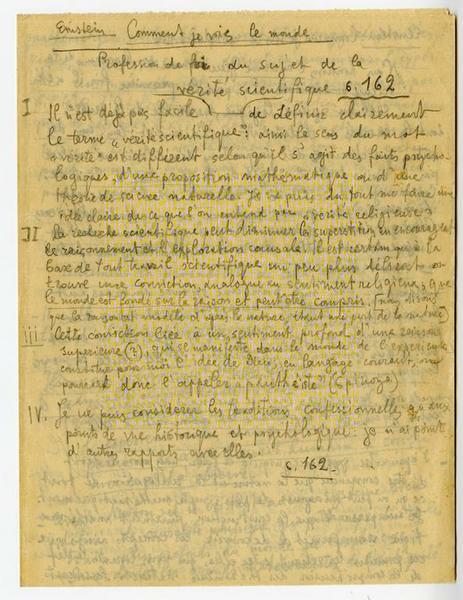 Einstein Comment je vois le monde
Profession de foi du sujet de la
vérité scientifique c. 162
I Il n'est déjà pas facile de définir clairement
le terme „vérité scientifique": ainsi le sens du mot
„vérité" est différent selon qu'il s'agit des faits psycho-
logiques, d'une proposition mathématique ou d'une
théorie de science naturelle. Je ne puis du tout me faire une
idée claire de ce que l'on entend par „vérité religieuse".
II La recherche scientifique peut diminuer la superstition en encourageant
le raisonnement et l'exploration causale. Il est certain qu'à la
base de tout travail scientifique un peu plus délicat on
trouve une conviction, analogue au sentiment religieux, que
le monde est fondé sur la raison et peut être compris.
que la raison est d'après la nature, étant une part de la nature
III Cette conviction liée à un sentiment profond d'une raison
supérieure (?), qui se manifeste dans le monde de l'expérience
constitue pour moi l'idée de Dieu; en langage courant, on
pourrait donc l'appeler „panthéiste" (Spinoza)
IV. Je ne puis considérer les traditions confessionnelles qu'aux
points de vue historique et psychologique: je n'ai point
d'autres rapports avec elles.
c. 162